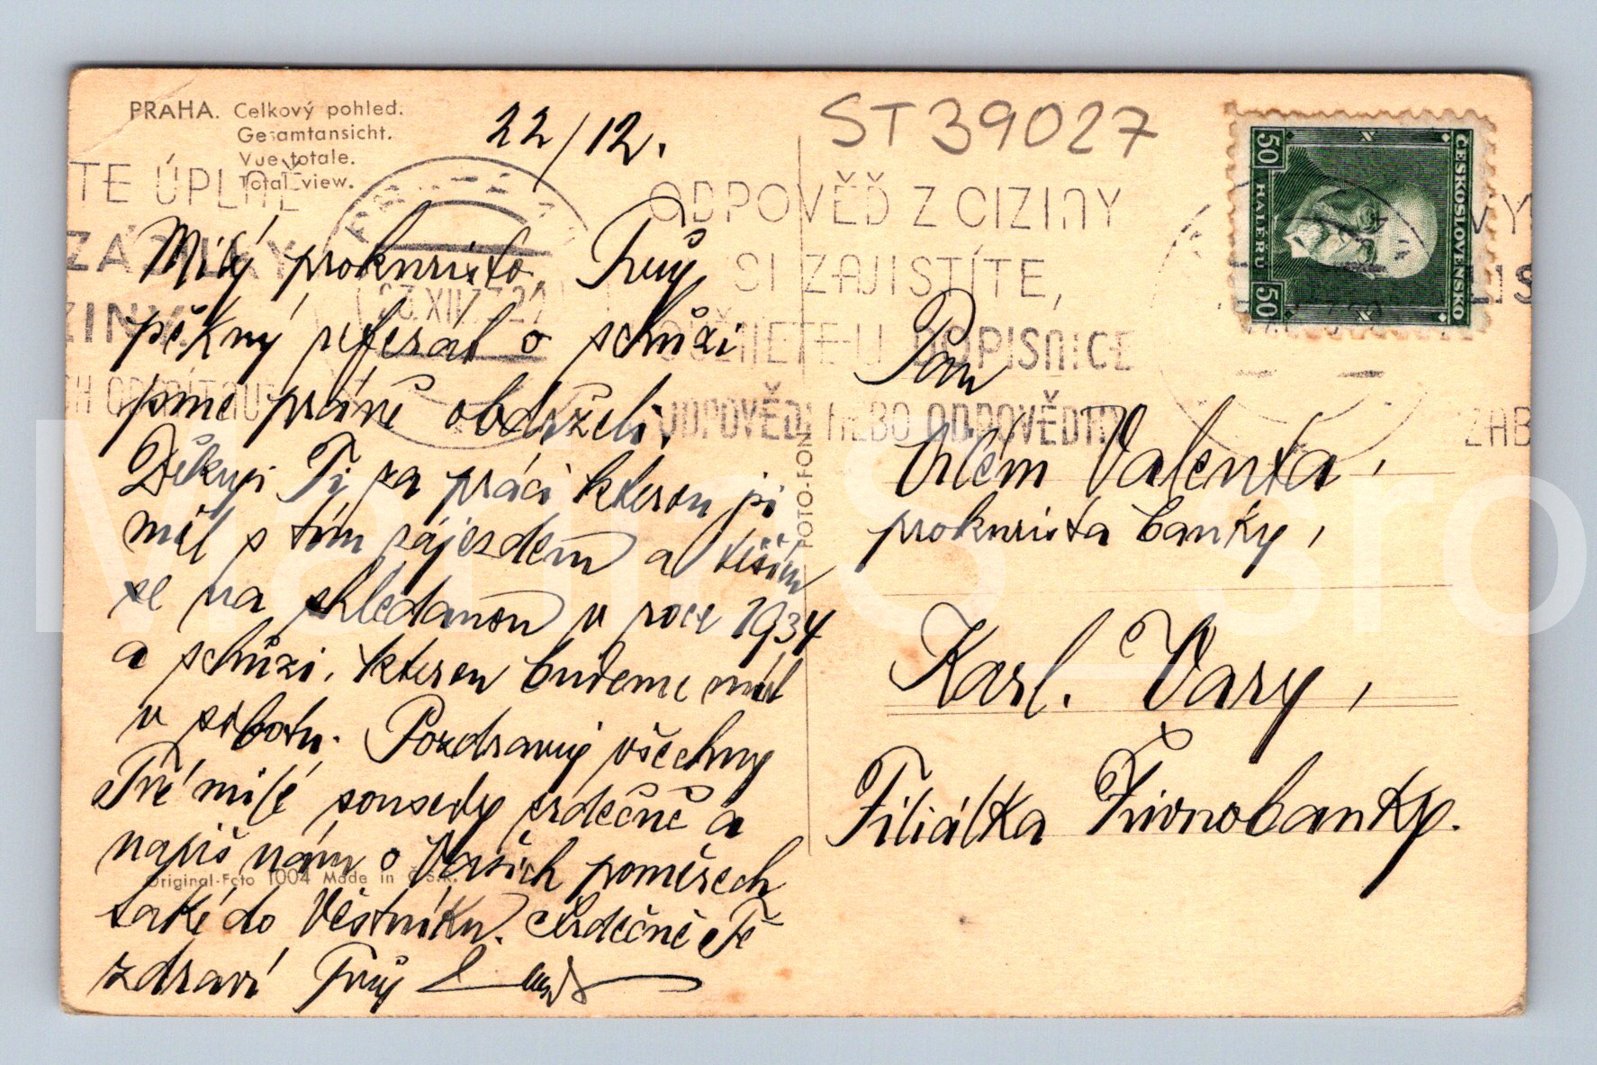 PRAHA. Celkový pohled.
Gesamtansicht.
Vue totale.
Total view.
22/12.
ST39027
TE ÚPLNÉ
ODPOVĚĎ Z CIZINY
SI ZAJISTÍTE,
DOPISNICE
ODPOVĚDI NEBO ODPOVĚDNÍ
VY
LIS
ZAB
ČESKOSLOVENSKO
50 HALÉŘŮ 50
Milý prokuristo, Tvůj
pěkný referát o schůzi
jsme právě obdrželi.
Děkuji Ti za práci kterou jsi
měl s tím zájezdem a těším
se na shledanou v roce 1934
a schůzi, kterou budeme míti
v sobotu. Pozdravuj všechny
Tvé milé sousedy srdečně a
napiš nám o Vašich poměrech
také do Věstníku. Srdečně Tě
zdraví Tvůj
Original-Foto 1004 Made in Č.S.R.
FOTO-FON
Pan
Vilém Valenta,
prokurista banky,
Karl. Vary,
Filiálka Živnobanky.